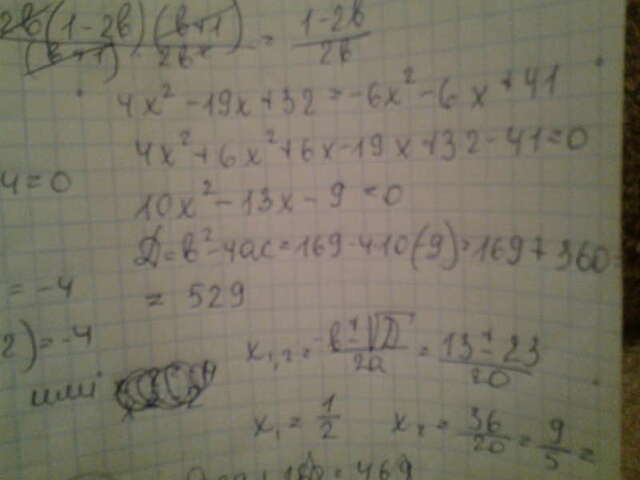 2b(1-2b)(b+1) / (b+1) 2b² = 1-2b / 2b
4x² - 19x + 32 = -6x² - 6x + 41
4x² + 6x² + 6x - 19x + 32 - 41 = 0
4 = 0
10x² - 13x - 9 = 0
D = b² - 4ac = 169 - 4·10(9) = 169 + 360
= -4
= 529
2) = -4
x₁,₂ = -b ± √D / 2a = 13 ± 23 / 20
или
x₁ = 1/2 x₂ = 36/20 = 9/5 =
= 469